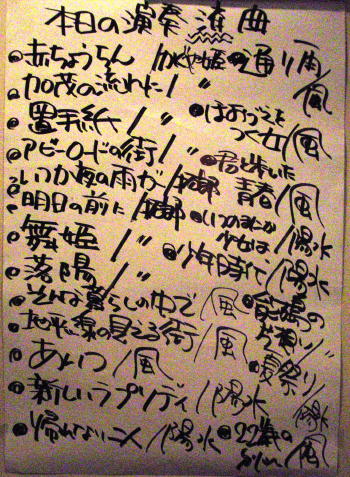 本日の演奏 曲
●赤ちょうちん/かぐや姫 ●通り雨/風
●加茂の流れに/〃
●ほおづえを
つく女/風
●置手紙/〃
●アビーロードの街/〃 ●君と歩いた
青春/風
●いつか夜の雨が/拓郎
●明日の前に/拓郎 ●いつのまにか
少女は/陽水
●舞姫/〃 ●少年時代/陽水
●落陽/〃
●そんな暮らしの中で/風 の
片想い/〃
●地平線の見える街/風 ●夏祭り/陽水
●あいつ/風
●新しいラプソディ/陽水
●帰れない二人/陽水 ●22歳の
別れ/風